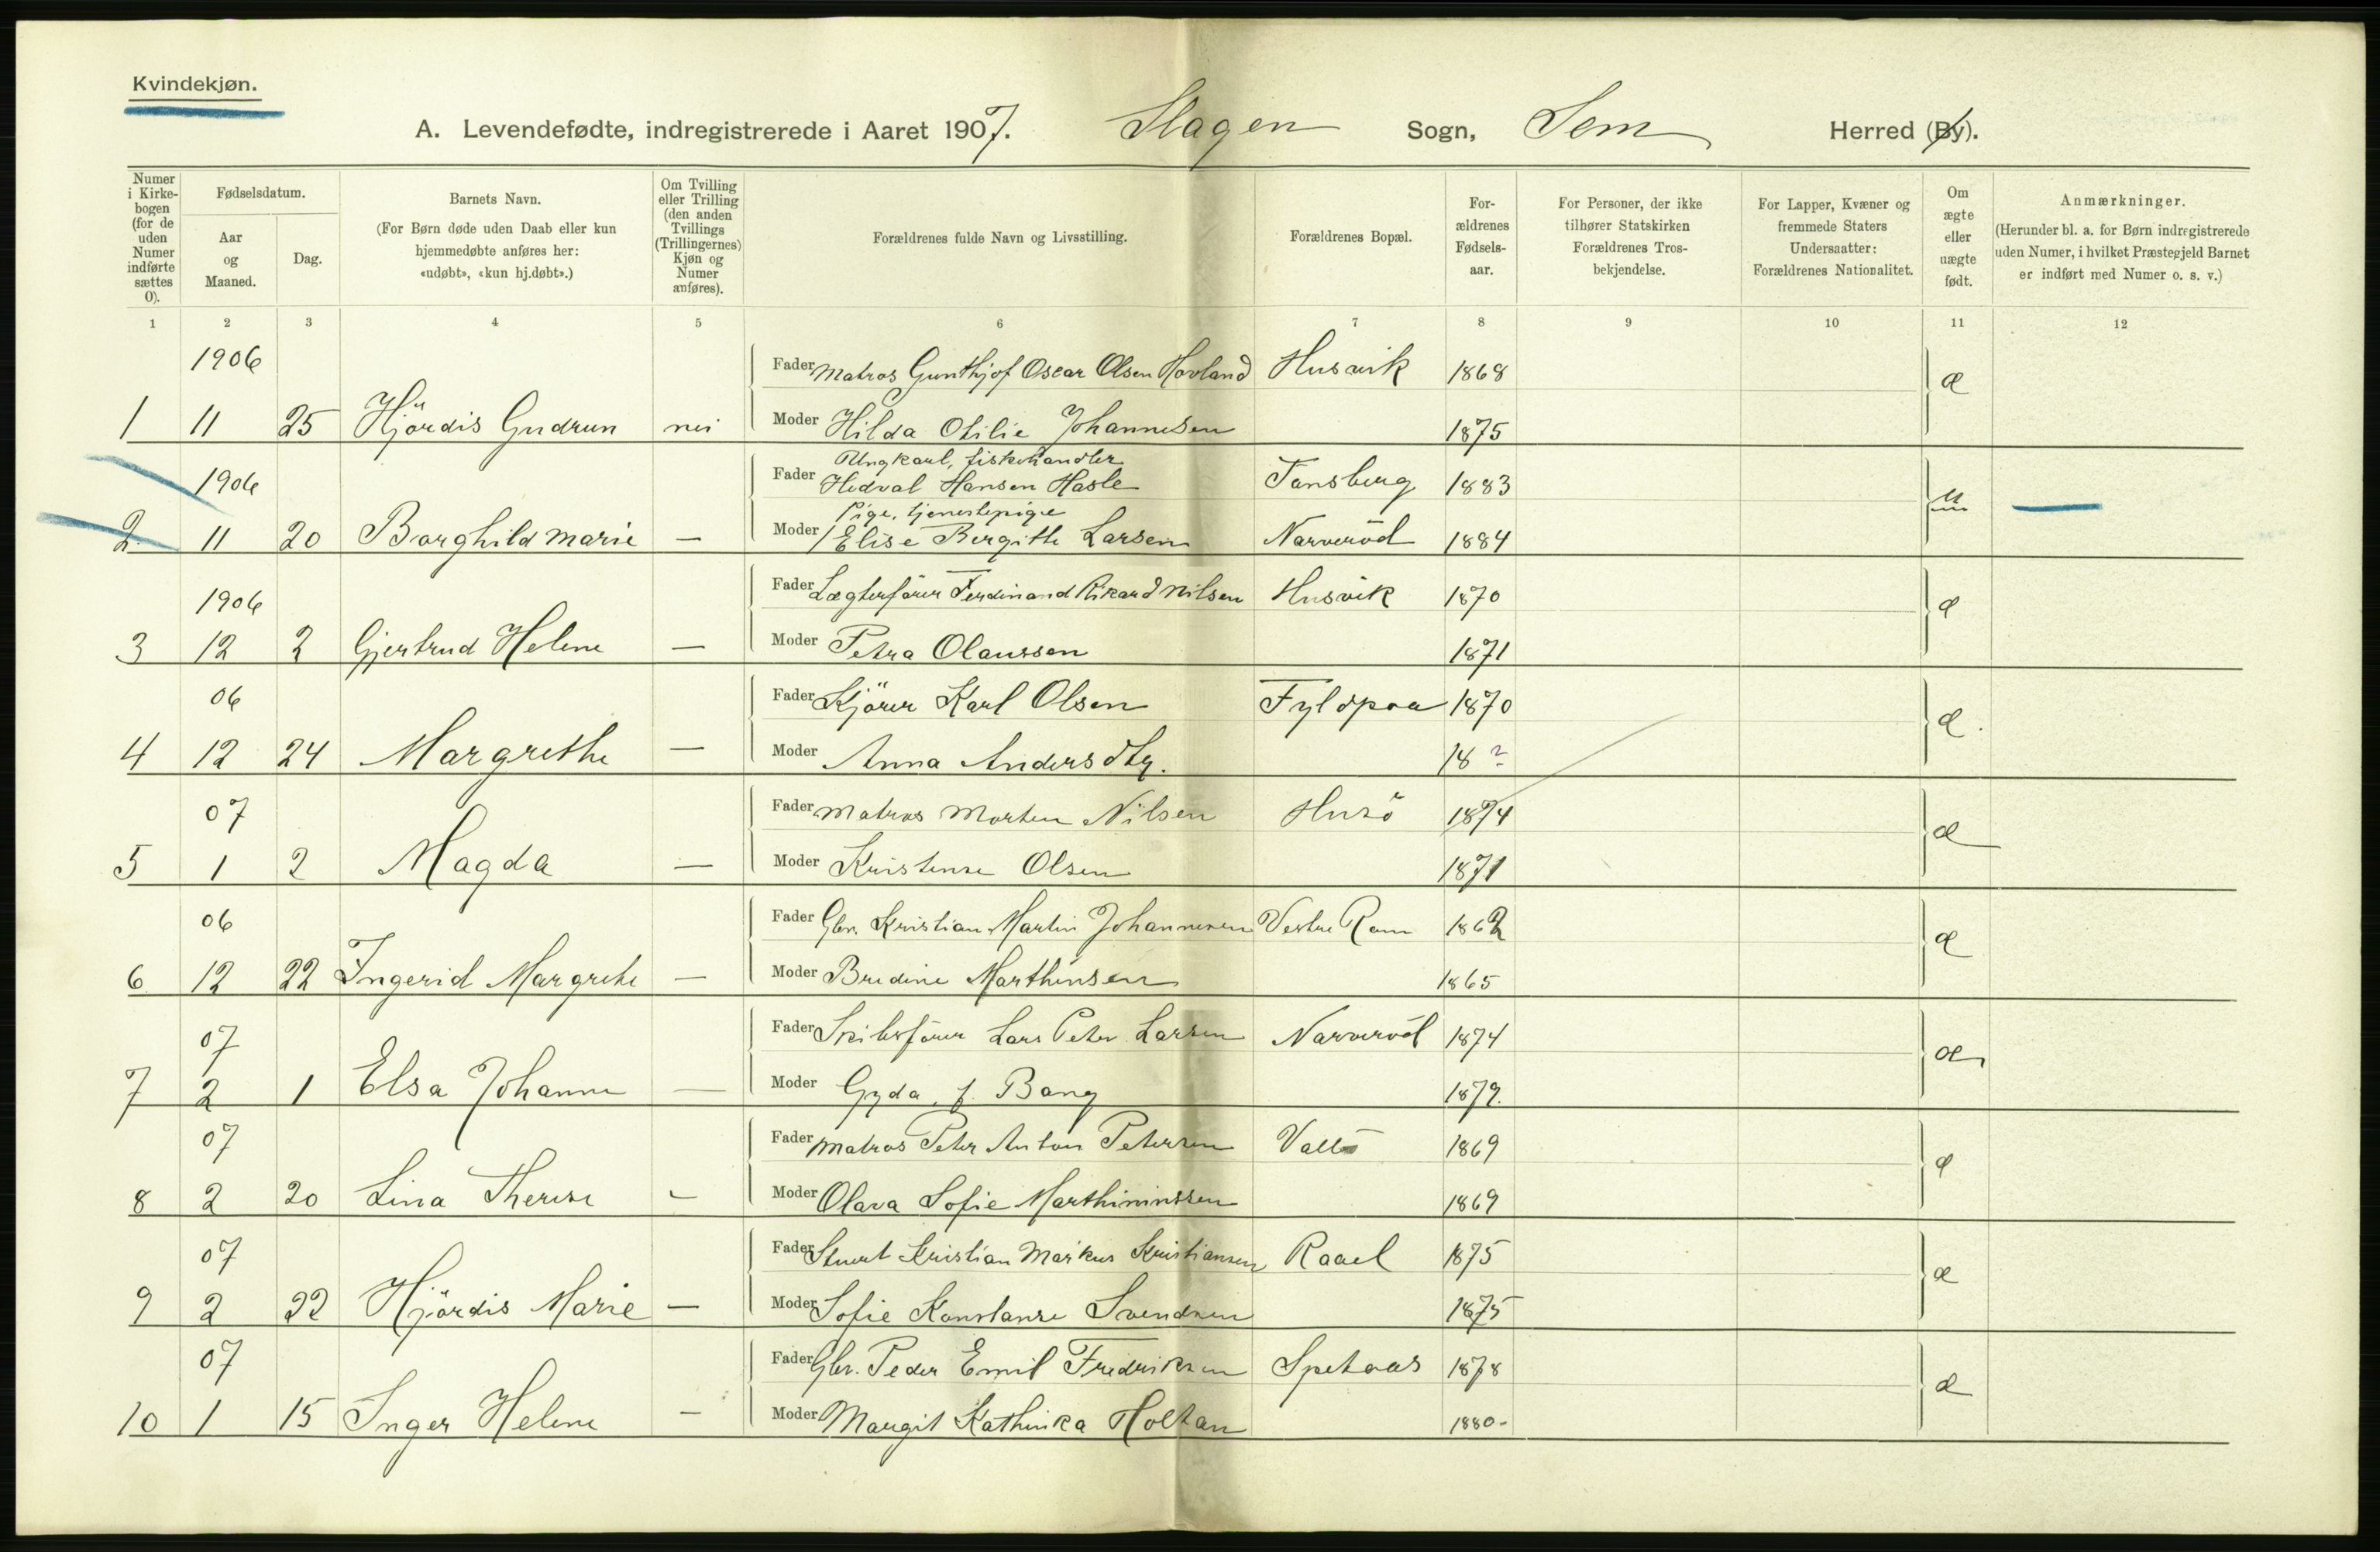 Kvindekjøn.
A. Levendefødte, indregistrerede i Aaret 1907. Slagen Sogn, Sem Herred (By).
Numer i Kirkebogen (for de uden Numer indførte sættes 0).
Fødselsdatum.
Aar og Maaned.
Dag.
Barnets Navn.
(For Børn døde uden Daab eller kun hjemmedøbte anføres her: «udøbt», «kun hj.døbt».)
Om Tvilling eller Trilling (den anden Tvillings (Trillingernes) Kjøn og Numer anføres).
Forældrenes fulde Navn og Livsstilling.
Forældrenes Bopæl.
Forældrenes Fødselsaar.
For Personer, der ikke tilhører Statskirken Forældrenes Trosbekjendelse.
For Lapper, Kvæner og fremmede Staters Undersaatter: Forældrenes Nationalitet.
Om ægte eller uægte født.
Anmærkninger.
(Herunder bl. a. for Børn indregistrerede uden Numer, i hvilket Præstegjeld Barnet er indført med Numer o. s. v.)
1 2 3 4 5 6 7 8 9 10 11 12
1906 Fader Matros Gunthjof Oscar Olsen Hovland Husvik 1868 æ
1 11 25 Hjördis Gudrun nei Moder Hilda Otilie Johannesen 1875
Ungkarl, fiskehandler
1906 Fader Hedval Hansen Hasle Tønsberg 1883 u
Pige, tjenestepige
2 11 20 Borghild Marie — Moder Elise Bergithe Larsen Narveröd 1884
1906 Fader Lægterförer Ferdinand Rikard Nilsen Husvik 1870 æ
3 12 2 Gjertrud Helene — Moder Petra Olaussen 1871
06 Fader Kjörer Karl Olsen Fyldpaa 1870 æ.
4 12 24 Margrethe — Moder Anna Andersdtr. 18 ?
07 Fader Matros Morten Nilsen Husö 1874 æ
5 1 2 Magda — Moder Kristense Olsen 1871
06 Fader Gbr. Kristian Martin Johannesen Vestre Ram 1862 æ
6 12 22 Ingerid Margrethe — Moder Bredine Marthinsen 1865
07 Fader Skibsförer Lars Peter Larsen Narveröd 1874 æ
7 2 1 Elsa Johanne — Moder Gyda, f. Bang 1879.
07 Fader Matros Peter Anton Petersen Vallö 1869 æ
8 2 20 Lina Therese — Moder Olava Sofie Marthininssen 1869
07 Fader Stuert Kristian Markus Kristiansen Raael 1875 æ
9 2 22 Hjördis Marie — Moder Sofie Konstanse Svendsen 1875
07 Fader Gbr. Peder Emil Fredriksen Spetaas 1878 æ
10 1 15 Inger Helene — Moder Margit Kathinka Holtan 1880-